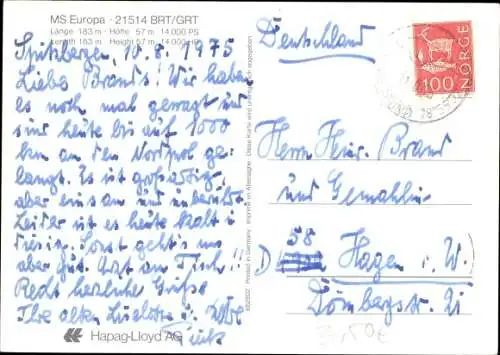 MS Europa · 21514 BRT/GRT
Länge 183 m · Höhe 57 m 14 000 PS
Length 183 m · Height 57 m 14 000 HP
Spitzbergen, 10. 8. 1975
Liebe Brands! Wir haben
es noch mal gewagt und
sind heute bis auf 1000
km an den Nordpol ge-
langt. Es ist großartig,
aber einsam und unberührt.
Leider ist es heute kalt u
diesig. Sonst geht's uns
aber gut. Arzt am Tisch!!
Recht herzliche Grüße
Ihre alten Liselotte u.
Hapag-Lloyd AG
Printed in Germany
Deutschland
NORGE
100
Herrn Heinr. Brand
und Gemahlin
D 58 Hagen i. W.
Dömbergstr. 21
3,50€